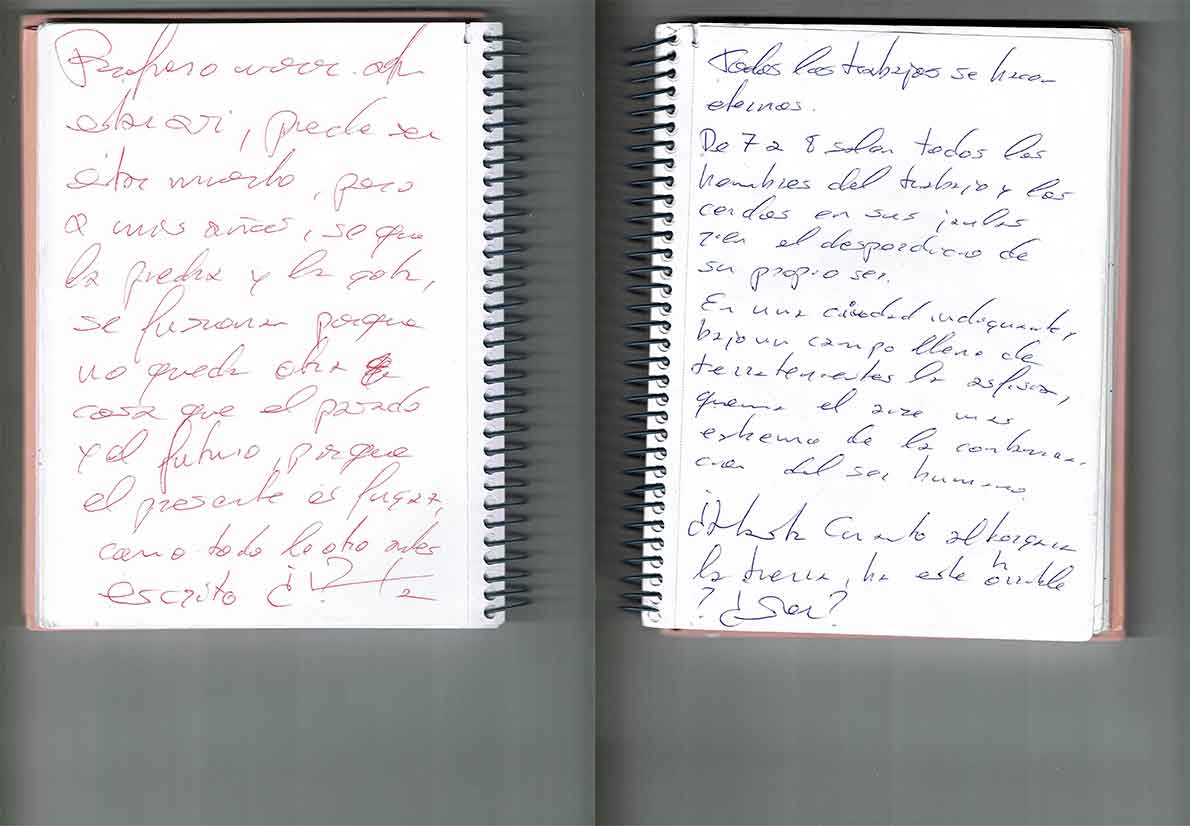 Prefiero vivir
estar así, puede ser
estar muerto, pero
a mis años, se que
la piedra y la gota,
se fusionan porque
no queda otra
cosa que el pasado
y el futuro, porque
el presente es fugaz,
como todo lo otro antes
escrito ¿?
Todos los trabajos se hacen
eternos.
De 7 a 8 salen todos los
hombres del trabajo y los
cerdos en sus jaulas
el desperdicio de
su propio ser.
En una ciudad indignante,
bajo un campo lleno de
terratenientes la asfixia,
quema el aire mas
extremo de la
del ser humano.
¿Hasta Cuanto albergara
la tierra, ha este orrible
? ¿Ser?